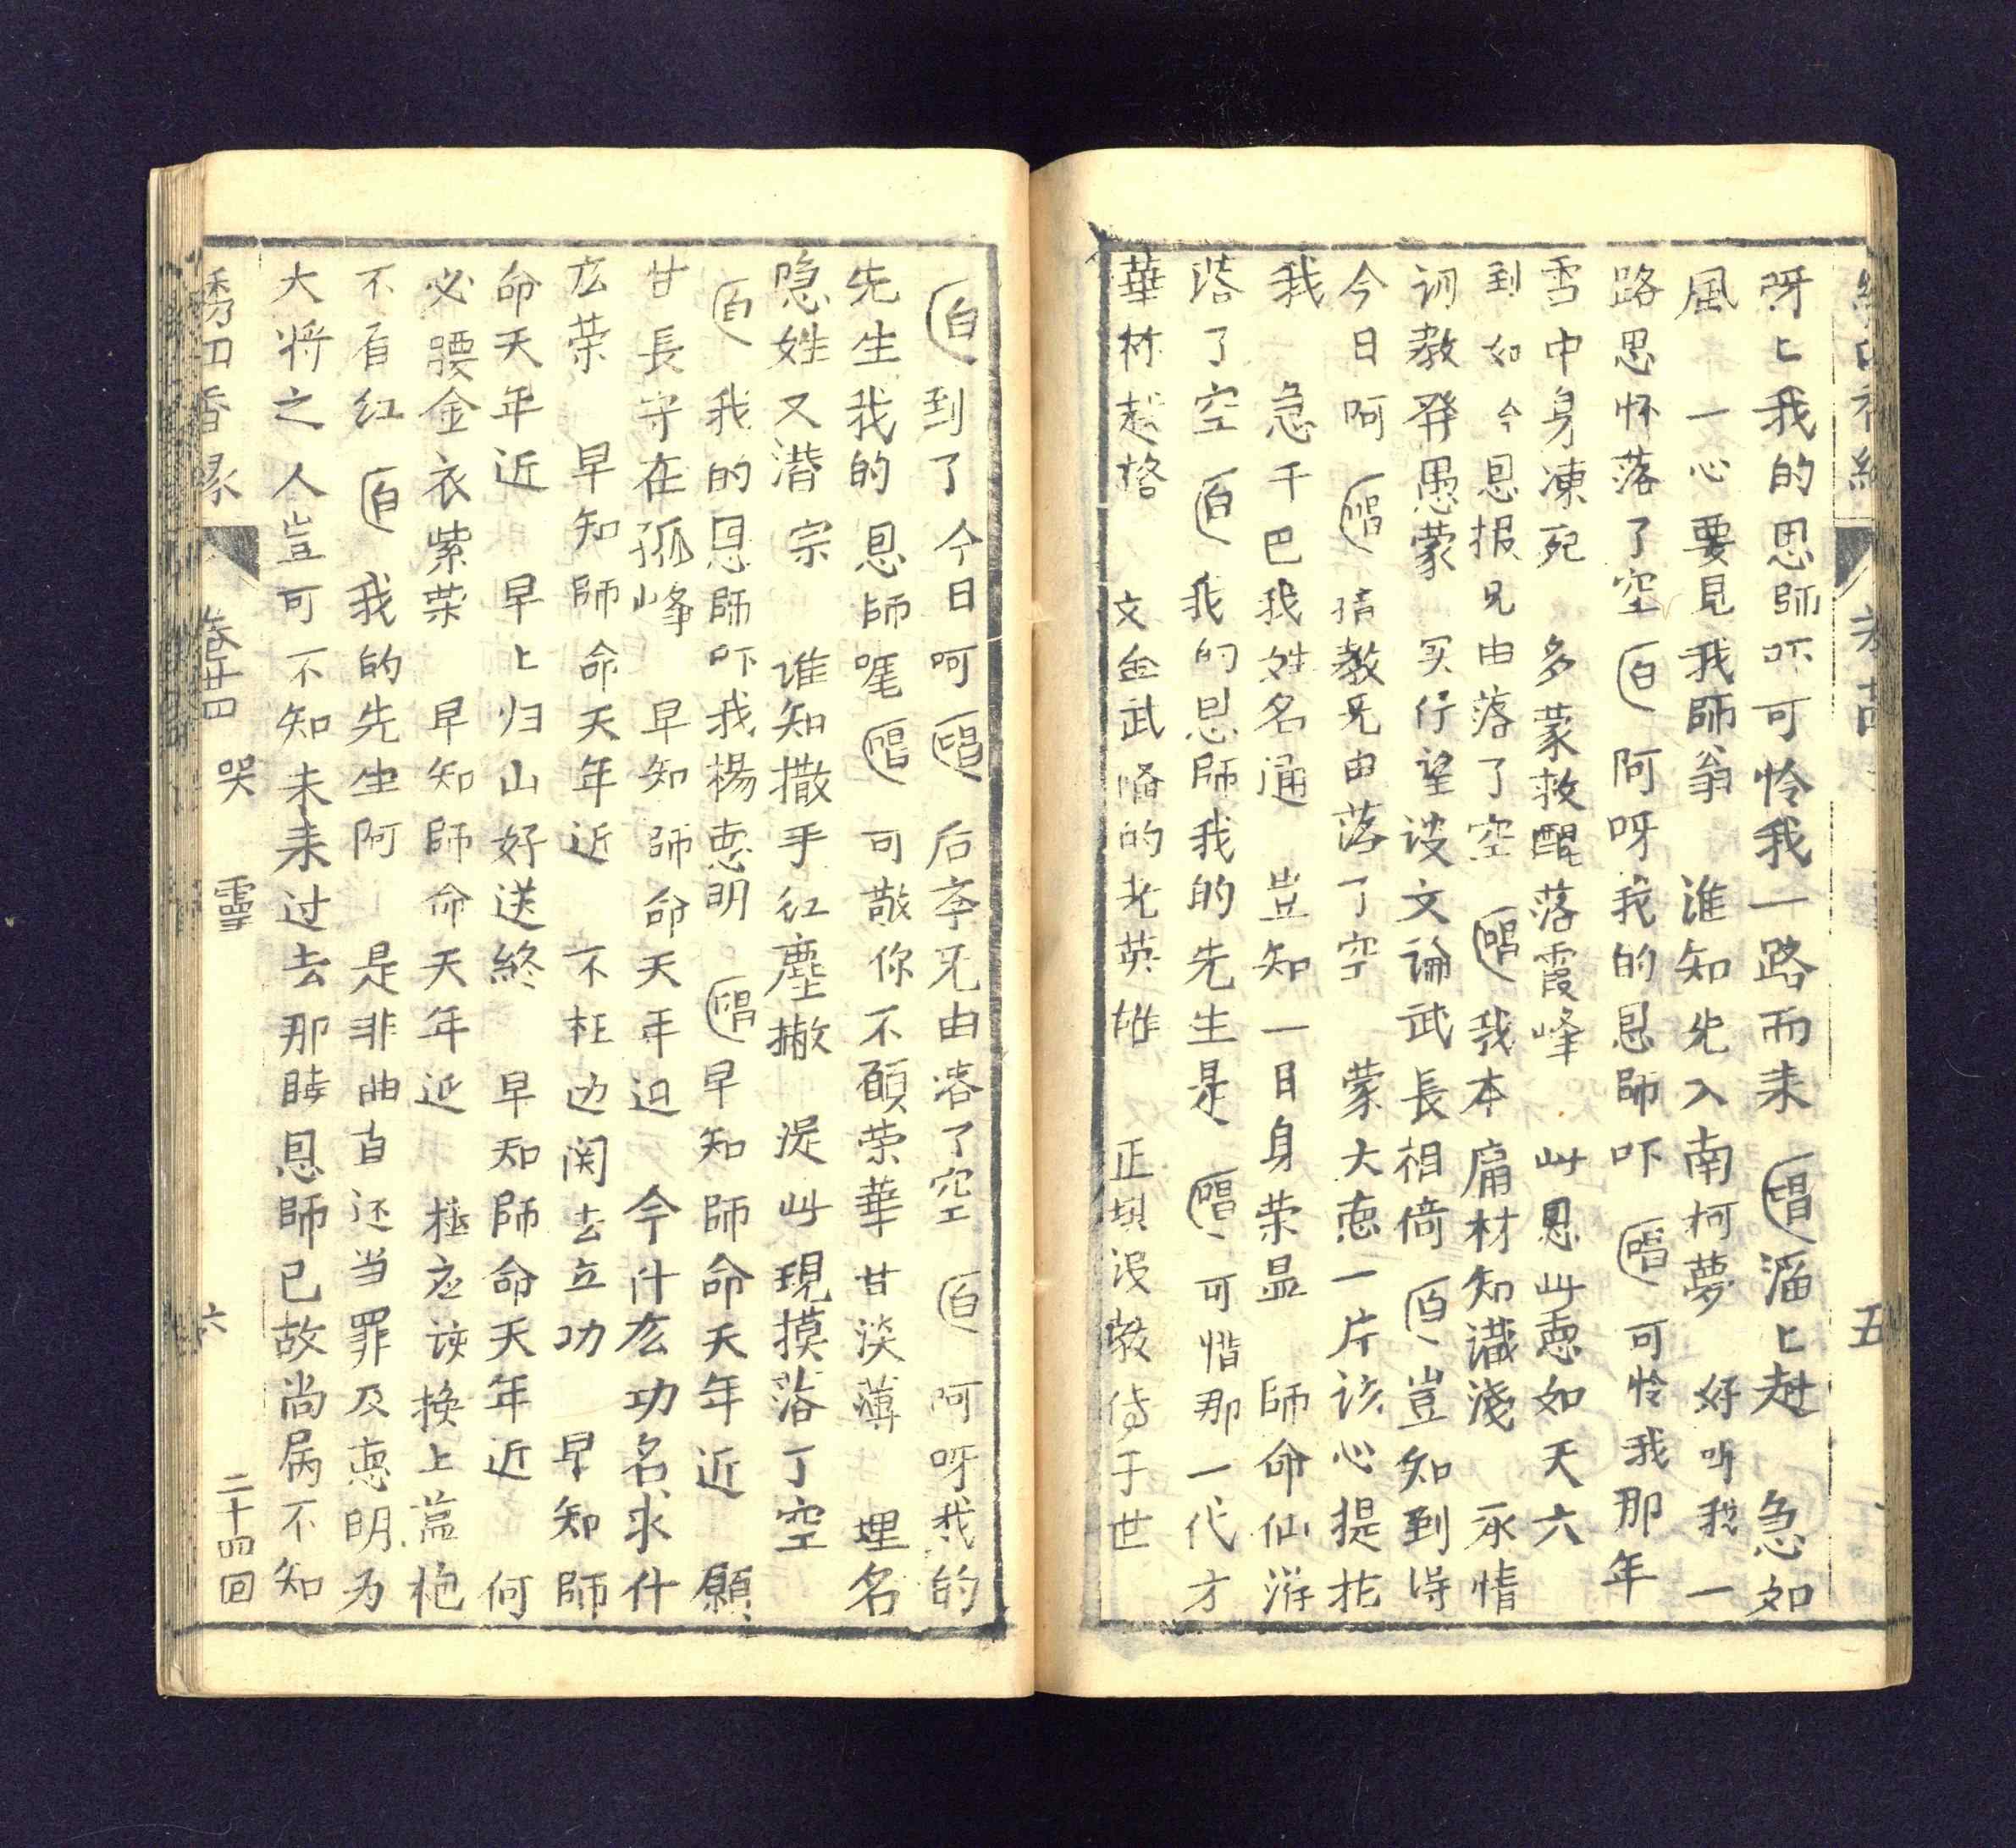 呀匕我的恩師吓可怜我一路而来 唱 滔匕赴 急如
風 一心要見我師翁 谁知先入南柯夢 好听我一
路思怀落了空 白 阿呀我的恩師吓 唱 可怜我那年
雪中身凍死 多蒙救醒落霞峰 此恩此惪如天六
到如今恩报兄由落了空 唱 我本庸材知識淺 承情
训教發愚蒙 实行望 文論武長相倚 白 豈知到得
今日呵 唱 教兄由落了空 蒙大惪一片该心提拈
我 急千巴我姓名通 豈知一日身荣显 師命仙游
落了空 白 我的恩師我的先生是 唱 可惜那一代方
華林起格 文金武偹的老英雄 正 没教傳于世
白 到了今日呵 唱 后李兄由落了空 白 阿呀我的
先生我的恩師嗄 唱 可敬你不願荣華甘淡薄 埋名
隐姓又潜宗 谁知撒手红塵撇 從此現摸落了空
白 我的恩師吓我楊惪明 唱 早知師命天年近 願
甘長守在孤峰 早知師命天年迫 今什庅功名求什
庅荣 早知師命天年近 不枉边闵去立功 早知師
命天年近 早上归山好送終 早知師命天年近 何
必腰金衣紫荣 早知師命天年近 换上蓝袍
不看红 白 我的先生阿 是非曲直还当罪及惪明为
大将之人豈可不知未来过去那時恩師已故尚属不知
卷廿四 哭 靈 六 二十四回
五